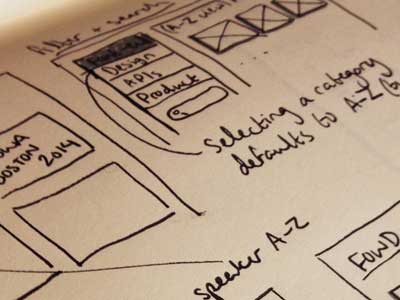 filter + search
Design
APIs
Product
A-Z
Selecting a category
defaults to A-Z
BOSTON
2014
speaker A-Z
FOWD